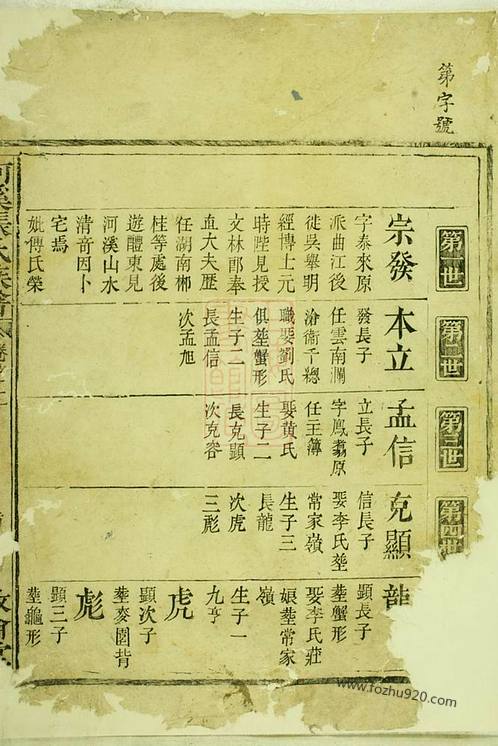 第字號
第一世
宗發
字泰來原
派曲江後
徙吳舉明
經博士元
時陛見授
文林郎奉
直大夫歷
任湖南郴
桂等處後
遊醴東見
河溪山水
清音因卜
宅焉
妣傅氏榮
第二世
本立
發長子
任雲南瀾
滄衛千總
職娶劉氏
俱塟蟹形
生子二
長孟信
次孟旭
第三世
孟信
立長子
字鳳翥原
任王簿
娶黃氏
生子二
長克顯
次克容
第四世
克顯
信長子
娶李氏塟
常家嶺
生子三
長龍
次虎
三彪
龍
顯長子
塟蟹形
娶李氏莊
娘塟常家
嶺
生子一
九亨
虎
顯次子
塟麥園背
彪
顯三子
塟龜形
河溪張氏族
www.fozhu920.com